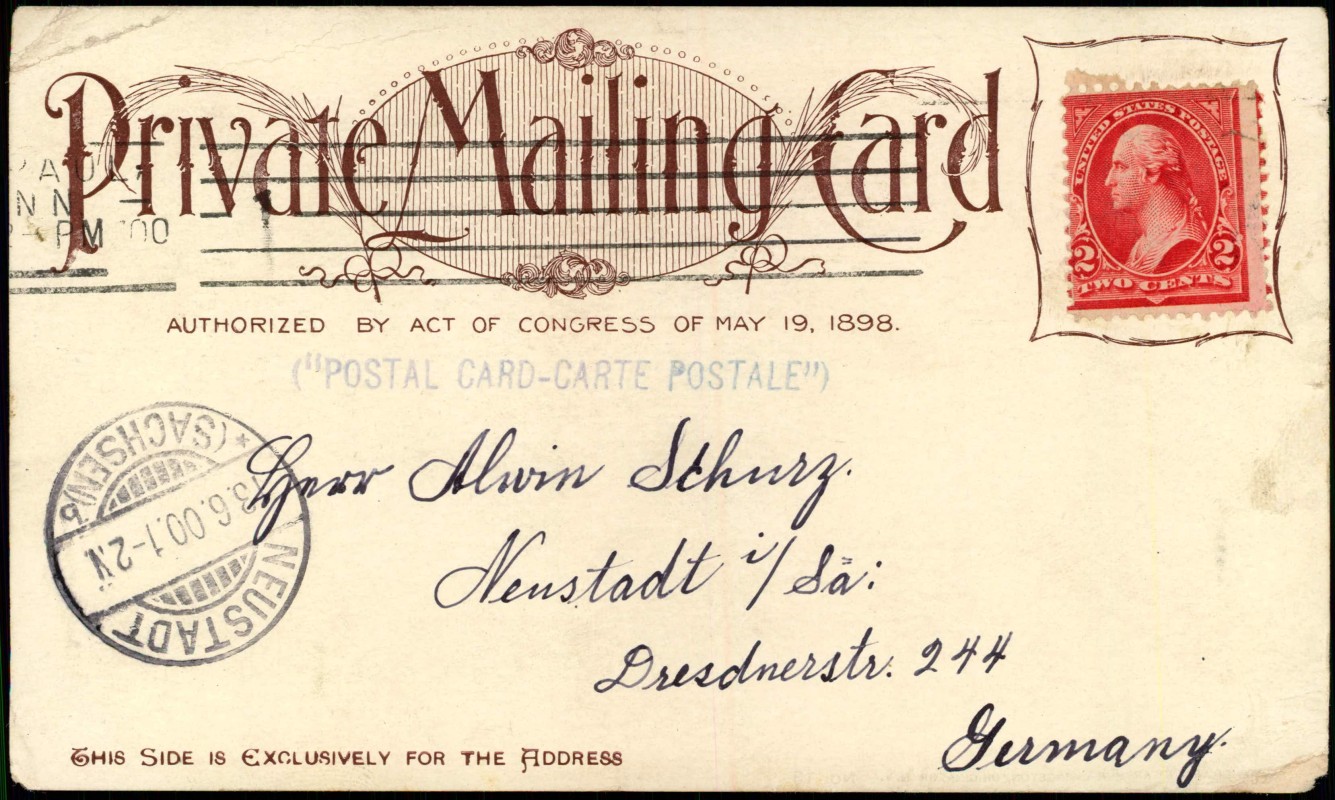 Private Mailing Card
UNITED STATES POSTAGE
2 2
TWO CENTS
PM 00
AUTHORIZED BY ACT OF CONGRESS OF MAY 19, 1898.
("POSTAL CARD-CARTE POSTALE")
NEUSTADT
(SACHSEN)
6.00.1-2N
Herr Alwin Schurz.
Neustadt i/Sä:
Dresdnerstr. 244
Germany.
THIS SIDE IS EXCLUSIVELY FOR THE ADDRESS